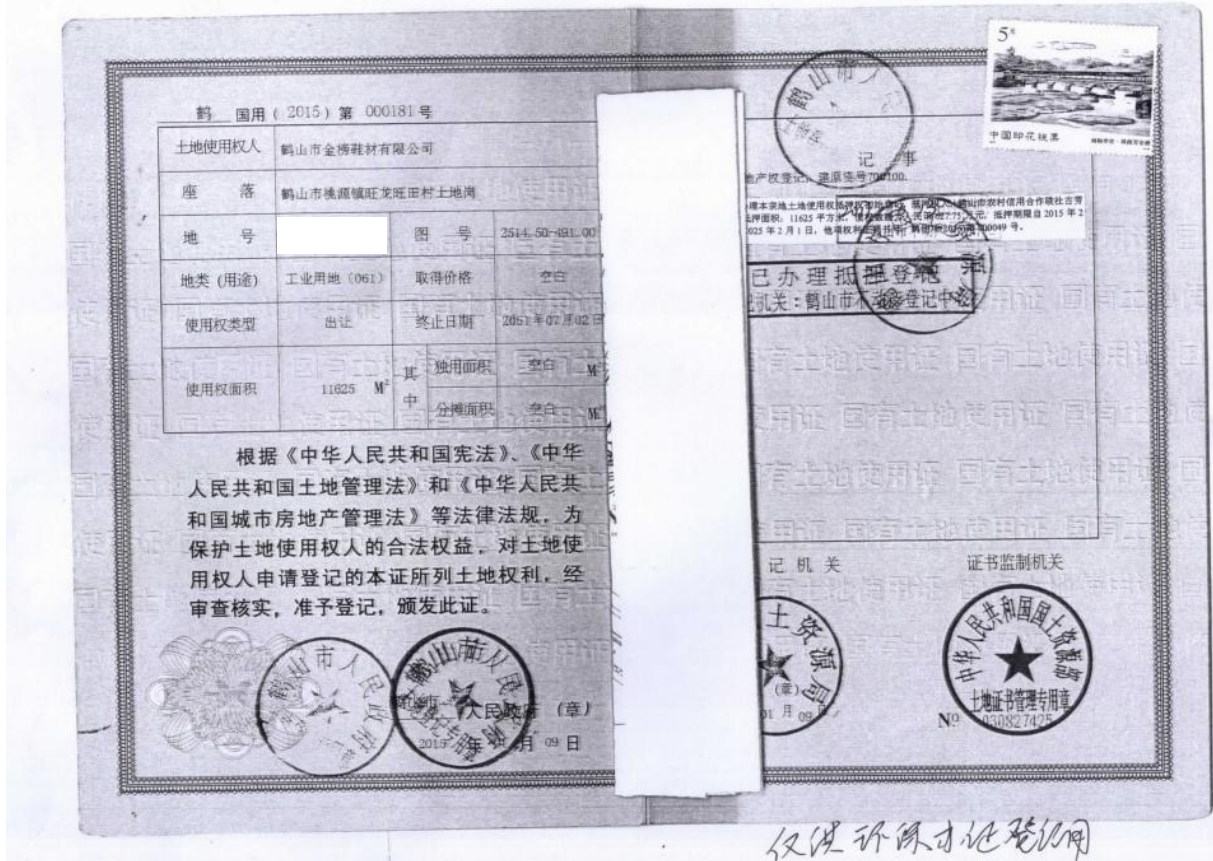 鹤 国用(2015)第 000181 号
土地使用权人 鹤山市金榜鞋材有限公司
座 落 鹤山市桃源镇旺龙旺田村土地岗
地 号 图 号 2514.50-491.00
地类(用途) 工业用地(061) 取得价格 空白
使用权类型 出让 终止日期 2051年07月02日
使用权面积 11625 M² 其中 独用面积 空白 M²
分摊面积 空白 M²
根据《中华人民共和国宪法》、《中华
人民共和国土地管理法》和《中华人民共
和国城市房地产管理法》等法律法规，为
保护土地使用权人的合法权益，对土地使
用权人申请登记的本证所列土地权利，经
审查核实，准予登记，颁发此证。
鹤山市人民政府
人民政府 (章)
2015 年 月 09 日
5元
中国印花税票
鹤山市人民
记 事
地产权登记：
押面积：11625 平方米
抵押期限自 2015 年 2
025 年 2 月 1 日，他项权利
已办理抵押登记
机关：鹤山市不动产登记中心
记 机 关
土资源局
(章)
01 月 09
证书监制机关
中华人民共和国国土资源部
土地证书管理专用章
Nº 030827425
仅供环保办证登记用